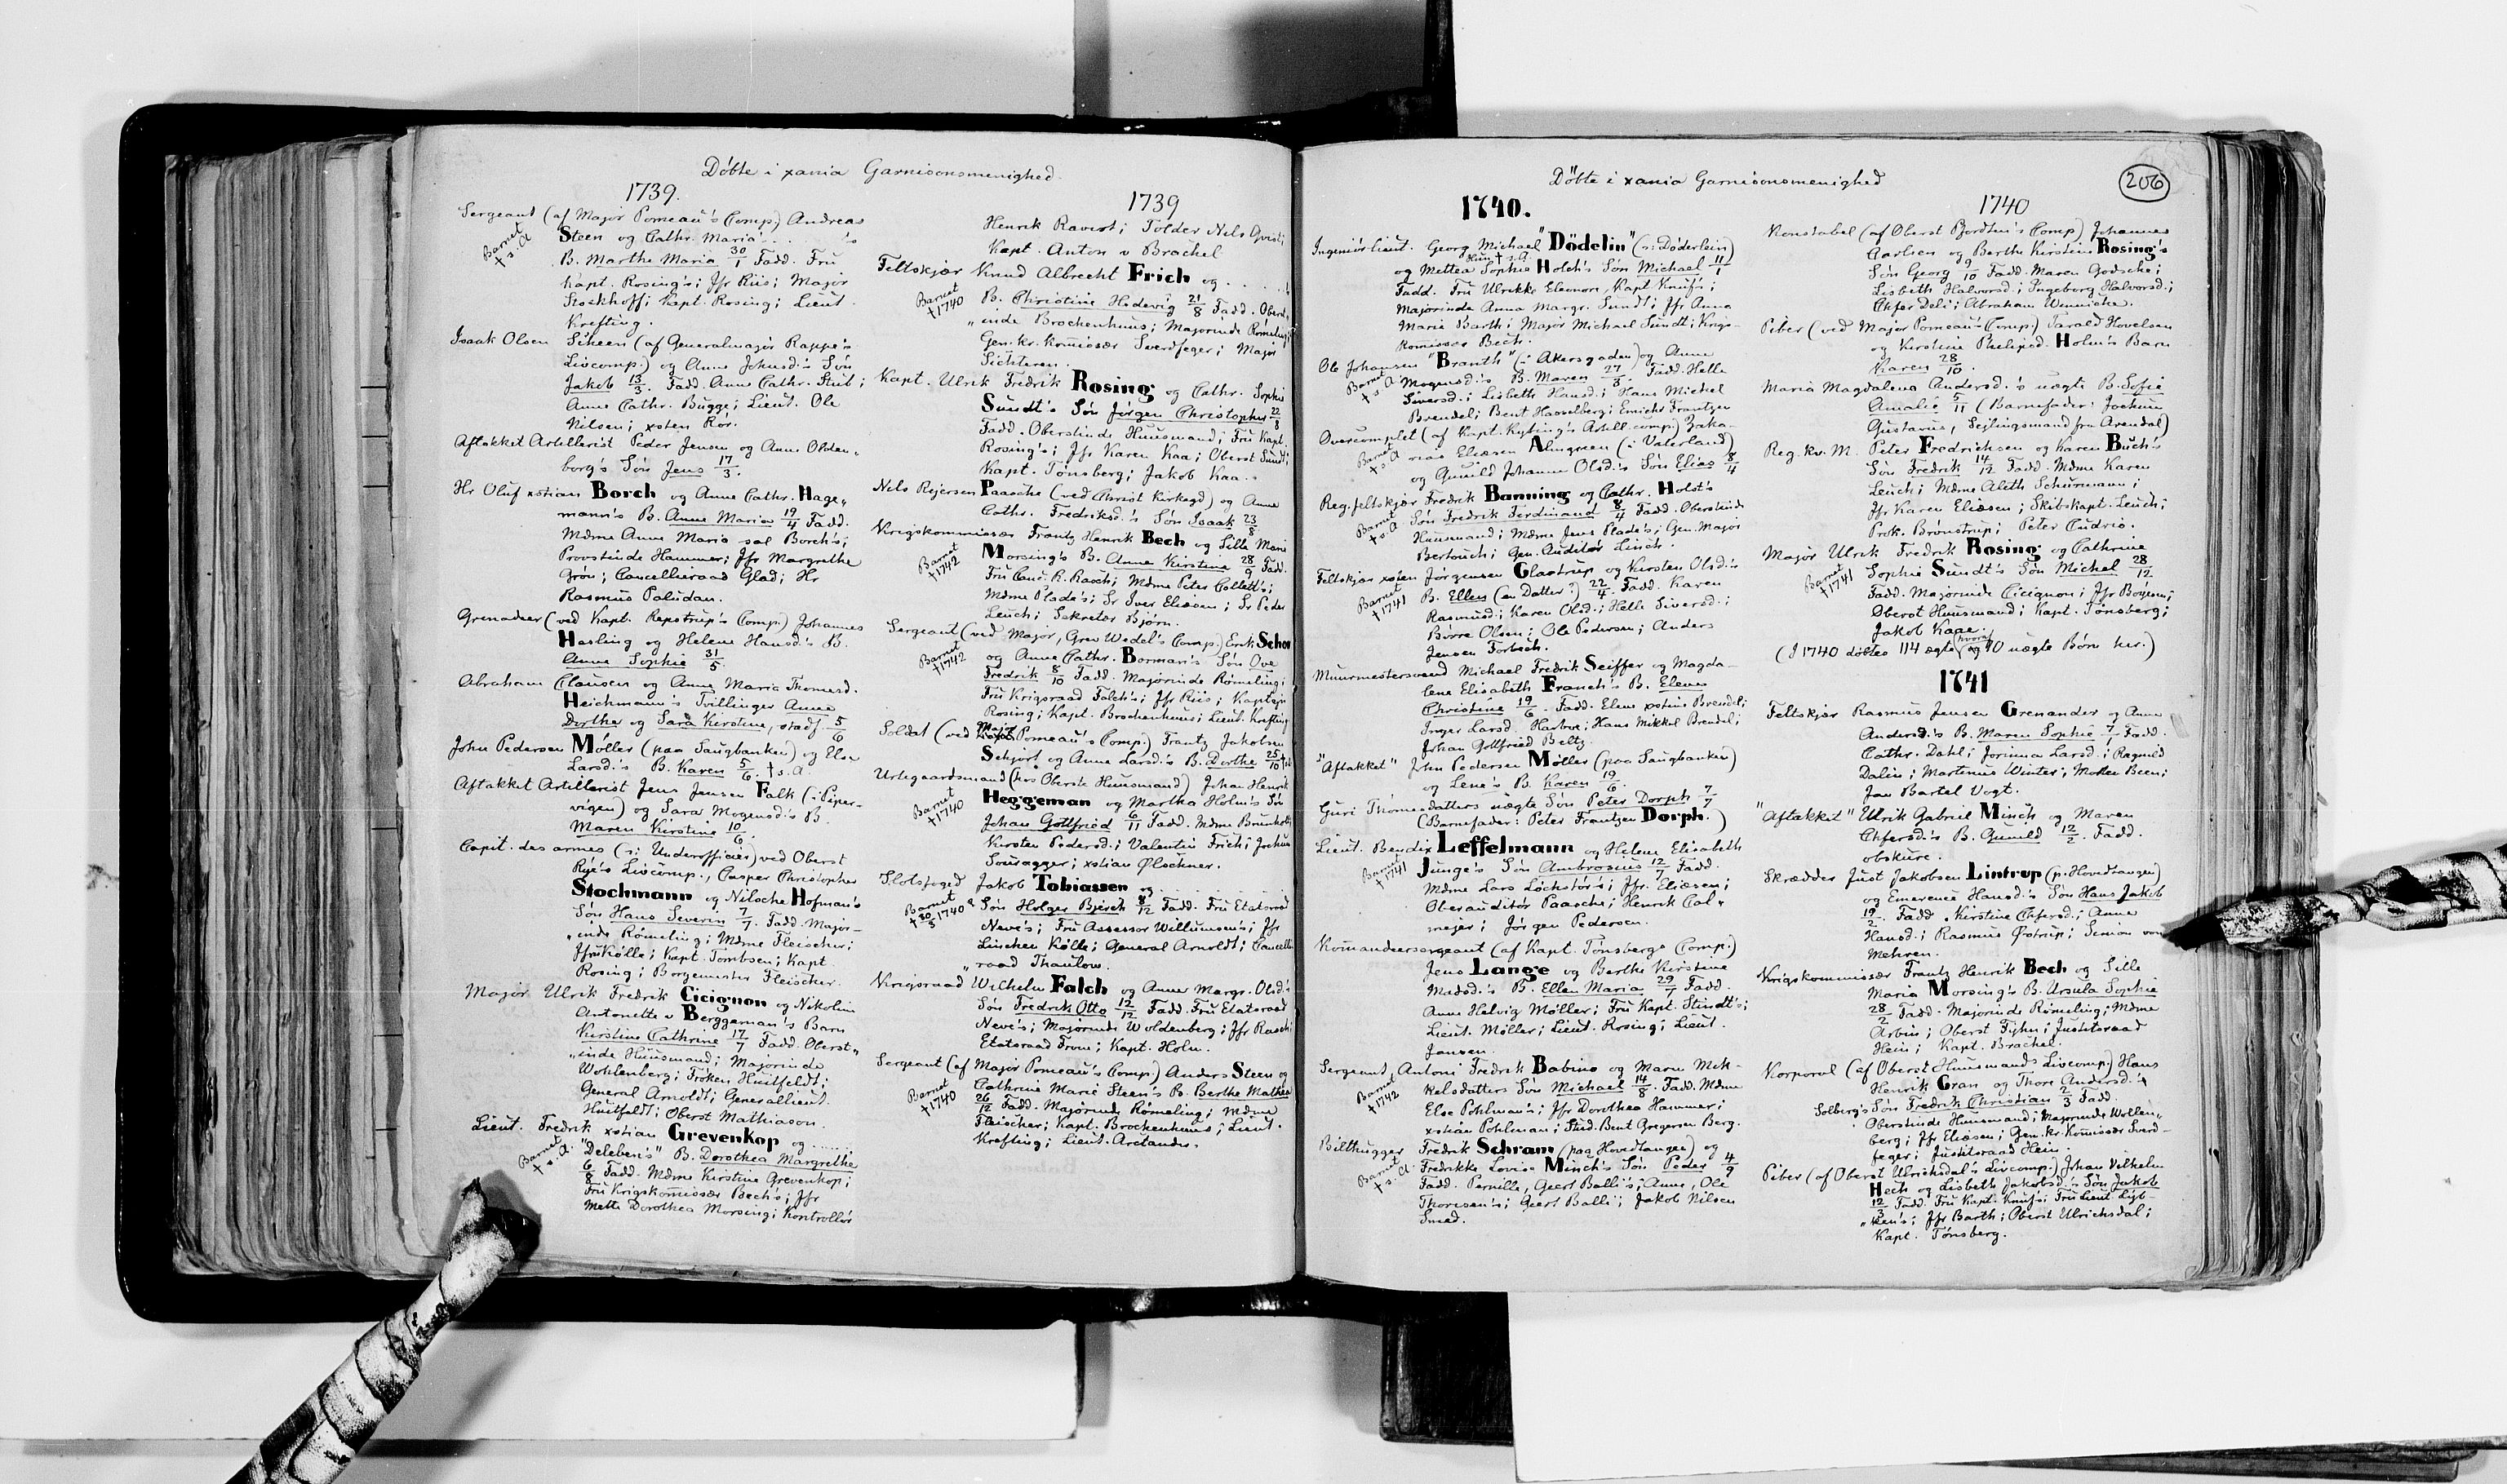 Döbte i xania Garnisonsmenighed.
1739.
Sergeant (af Major Pomeau's Comp.) Andreas
Barnet † s. A
Steen og Cathr. Maria . . . 's
B. Marthe Maria 30/1 Fadd. Fru
Kapt. Rosing's; Jfr Riis; Major
Stockhoff; Kapt. Rosing; Lieut.
Krefting.
Isaak Olsen Sikeen (af Generalmajor Rappe's
Livcomp.) og Anne Johnsd.'s Søn
Jakob 13/3. Fadd. Anne Cathr. Stub;
Anne Cathr. Bugge; Lieut. Ole
Nilsen; xsten Rør.
Aftakket Artillerist Peder Jensen og Anne Olden„
borg's Søn Jens 17/3.
Hr Oluf xstian Borch og Anne Cathr. Hage„
mann's B. Anne Maria 19/4 Fadd.
Mdme Anne Maria sal Borch's;
Provstinde Hammer; Jfr Margrethe
Grøn; Cancelliraad Glad; Hr
Rasmus Paludan.
Grenadeer (ved Kapt. Repstrup's Comp.) Johannes
Hasling og Helene Hansd.'s B.
Anne Sophie 31/5.
Abraham Clausen og Anne Maria Thomesd.
Heichmann's Tvillinger Anne
Dorthe og Sara Kirstine, stadf. 5/6
John Pedersen Møller (paa Saugbanken) og Else
Larsd.'s B. Karen 5/6. † s. A.
Aftakket Artillerist Jens Jensen Falk (i Piper-
vigen) og Sara Mogensd.'s B.
Maren Kirstine 10/6.
Capit. des armes (ɔ: Underofficier) ved Oberst
Rye's Livcomp., Casper Christopher
Stochmann og Niloche Hofman's
Søn Hans Severin 7/7. Fadd. Major-
„inde Rømeling; Mdme Fleischer;
Jfr Kølle; Kapt. Tombsen; Kapt.
Rosing; Borgemester Fleischer.
Major Ulrik Fredrik Cicignon og Nikoline
Antonette v Berggeman's Barn
Kirstine Cathrine 17/7 Fadd. Oberst„
„inde Huusmand; Majorinde
Wohlenberg; Frøken Huitfeldt;
General Arnoldt; Generallieut.
Huitfeldt; Oberst Mathiason.
Lieut. Fredrik xstian Grevenkop og . . . . .
Barnet † s. A.
"Deleben's" B. Dorothea Margrethe
6/8 Fadd. Mdme Kirstine Grevenkop;
Fru Krigskomissær Bech's; Jfr
Mette Dorothea Morsing; Kontrollør
1739
Henrik Ravert; Tolder Nils Qvist;
Kapt. Anton v Brachel
Feltskjær Knud Albrecht Frich og . . . . .
Barnet †1740
B. Christine Hedevig 21/8 Fadd. Oberst„
„inde Brockenhuus; Majorinde Rømeling;
Gen. kr. komissær Sverdfeger; Major
Sichteren.
Kapt. Ulrik Fredrik Rosing og Cathr. Sophie
Sundt's Søn Jørgen Christopher 22/8
Fadd. Oberstinde Huusmand; Fru Kapt.
Rosing's; Jfr Karen Kaa; Oberst Sundt;
Kapt. Tønsberg; Jakob Kaa.
Nils Rejersen Paasche (ved Christ Kirkegd) og Anne
Cathr. Fredriksd.'s Søn Isaak 23/8
Krigskommissær Frantz Henrik Bech og Sille Marie
Barnet †1742
Morsing's B. Anne Kirstine 28/9 Fadd.
Fru Canc. R. Rasch; Mdme Peter Collett's;
Mdme Plade's; Sr Iver Eliesen; Sr Peder
Leuch; Sekretær Bjørn.
Sergeant (ved Major, Grev Wedel's Comp.) Erik Schou
Barnet †1742
og Anne Cathr. Borman's Søn Ove
Fredrik 8/10 Fadd. Majorinde Rømeling;
Fru Krigsraad Falch's; Jfr Riis; Kaptejn
Rosing; Kapt. Brockenhuus; Lieut. Krefting
Soldat (ved Major Pomeau's Comp.) Frantz Jakobsen
Schjørt og Anne Larsd.'s B. Dorthe 25/10
Urtegaardsmand (hos Oberst Huusmand) Johan Henrik
Barnet †1740
Heggeman og Martha Holm's Søn
Johan Gottfried 6/11 Fadd. Mdme Brunholt;
Kirsten Pedersd.; Valentin Frich; Jochum
Souragger; xstian Ølschner.
Slotsfoged Jakob Tobiassen og . . . . . . . . .
Barnet † 30/3 1740?
Søn Holger Bjerch 8/12 Fadd. Fru Etatsraad
Neve's; Fru Assessor Willumsen's; Jfr
Linchen Kølle; General Arnoldt; Cancelli
„raad Thaulow.
Krigsraad Wilhelm Falch og Anne Margr. Olsd.'s
Søn Fredrik Otto 12/12 Fadd. Fru Etatsraad
Neve's; Majorinde Woldenberg; Jfr Rasch;
Etatsraad From; Kapt. Holm.
Sergeant (af Major Pomeau's Comp.) Anders Steen og
Barnet †1740
Cathrine Marie Steen's B. Berthe Mathea
26/12 Fadd. Majorinde Rømeling; Mdme
Fleischer; Kapt. Brockenhuus; Lieut.
Krefting; Lieut. Arctander.
Döbte i xania Garnisonsmenighed
206
1740.
Ingeniörlieut. Georg Michael "Dödelin" (ɔ: Döderlein)
Hun † s. A.
og Mettea Sophie Holch's Søn Michael 11/1
Fadd. Fru Ulrikke Eleonore, Kapt. Knuf's;
Majorinde Anna Margr. Sundt; Jfr Anna
Maria Barth; Major Michael Sundt; Krigs-
komissær Bech.
Ole Johansen "Branth" (i Akersgaden) og Anne
Barnet † s. A
Mogensd.'s B. Maren 27/3. Fadd. Helle
Siversd.; Lisbeth Hansd.; Hans Michel
Brendel; Bent Hasselberg; Emichr Frantzen
Overcomplet (af Kapt. Kyting's Artill. comp.) Zaka-
Barnet † s. A
rias Eliæsen Almgreen (i Vaterland)
og Gunild Johanne Olsd.'s Søn Elias 8/4
Reg. feltskjær Fredrik Banning og Cathr. Holst's
Barnet † s. A
Søn Fredrik Ferdinand 8/4 Fadd. Oberstinde
Huusmand; Mdme Jens Plade's; Gen. Major
Bertouch; Gen. Auditør Linch.
Feltskjær xsten Jørgensen Glastrup og Kirsten Olsd.'s
Barnet †1741
B. Ellen (en Datter?) 22/4. Fadd. Karen
Rasmusd.; Karen Olsd.; Helle Siversd.;
Børre Olsen; Ole Pedersen; Anders
Jensen Forbech.
Muurmestersvend Michael Fredrik Seiffer og Magda-
lene Elisabeth Franch's B. Elene
Christine 19/6. Fadd. Elene xstine Brendel;
Inger Larsd. Harboe; Hans Mikkel Brendel;
Johan Gottfried Beltz.
"Aftakket" John Pedersen Møller (paa Saugbanken)
og Lene's B. Karen 19/6.
Guri Thomesdatters uægte Søn Peter Dorph 7/7
(Barnefader: Peter Frantzen Dorph.)
Lieut. Bendix Leffelmann og Helene Elisabeth
Barnet †1741
Junge's Søn Ambrosius 12/7 Fadd.
Mdme Lars Løchstør's; Jfr. Eliæsen;
Oberauditør Paasche; Henrik Cal„
mejer; Jørgen Pedersen.
Komandeersergeant (af Kapt. Tønsbergs Comp.)
Jens Lange og Berthe Kirstine
Madsd.'s B. Ellen Maria 29/7 Fadd.
Anne Helvig Møller; Fru Kapt. Stindt's;
Lieut. Møller; Lieut. Rosing; Lieut.
Jansen.
Sergeant Antoni Fredrik Babins og Maren Mik-
Barnet †1742
kelsdatters Søn Michael 14/8. Fadd. Mdme
Else Pohlman's; Jfr Dorothea Hammer;
xstian Pohlman; Stud. Bent Gregersen Berg.
Bilthugger Fredrik Schram (paa Hovedtangen) og
Barnet † s. A.
Fredrikke Lovise Minch's Søn Peder 4/9
Fadd. Pernille, Geert Balli's; Anne, Ole
Thoresen's; Geert Balli; Jakob Nilsen
Smed.
1740
Konstabel (af Oberst Pjordten's Comp.) Johannes
Carlsen og Berthe Kirstine Rosing's
Søn Georg 9/10 Fadd. Maren Godsche;
Lisbeth Halvorsd.; Ingeborg Halvorsd.;
Christopher Deli; Abraham Wennicke.
Piber (ved Major Pomeau's Comp.) Tarald Hovelsen
og Kirstine Philipsd. Holm's Barn
Karen 28/10.
Maria Magdalena Andersd.'s uægte B. Sofie
Amalie 5/11 (Barnefader: Jochum
Gustavus, Sejlingsmand fra Arendal)
Reg. kv. M. Peter Fredrichsen og Karen Buch's
Søn Fredrik 14/12 Fadd. Mdme Karen
Leuch; Mdme Aleth Schurmann;
Jfr Karen Eliæsen; Skibskapt. Leuch;
Prok. Brønstrup; Peter Cudrio.
Major Ulrik Fredrik Rosing og Cathrine
Barnet †1741
Sophie Sundt's Søn Michel 28/12
Fadd. Majorinde Cicignon; Jfr Boyesen;
Oberst Huusmand; Kapt. Tønsberg;
Jakob Kaae.
(I 1740 døbtes 114 ægte og hvoraf 10 uægte Børn her.)
1741
Feltskjær Rasmus Jensen Grenander og Anne
Andersd.'s B. Maren Sophie 7/1 Fadd.
Cathr. Dahl; Jorinna Larsd.; Regnild
Dalin; Martinus Winter; Morten Been;
Jan Bartel Vogt.
"Aftakket" Ulrik Gabriel Minch og Maren
Chfersd.'s B. Gunild 12/2. Fadd.
obskure.
Skrædder Just Jakobsen Lintrup (p. Hovedtangen)
og Emerence Hansd.'s Søn Hans Jakob
19/2. Fadd. Kirstine Chfersd.; Anne
Hansd.; Rasmus Østrup; Simon von
Mehren.
Krigskommissær Frantz Henrik Bech og Sille
Maria Morsing's B. Ursula Sophie
28/2 Fadd. Majorinde Rømeling; Mdme
Arbin; Oberst Fyhn; Justitsraad
Hein; Kapt. Brachel.
Korporal (af Oberst Huusmands Livcomp.) Hans
Henrik Gran og Thore Andersd.'s
Solberg's Søn Fredrik Christian 2/3 Fadd.
Oberstinde Huusmand; Majorinde Wollen„
berg; Jfr Eliæsen; Gen. kr. Komissær Sverd-
feger; Justitsraad Hein.
Piber (af Oberst Ulrichsdal's Livcomp.) Johan Vilhelm
Hech og Lisbeth Jakobsd.'s Søn Jakob
12/3 Fadd. Fru Kapt. Knuf's; Fru Lieut. Lyt-
„ken's; Jfr Barth; Oberst Ulrichsdal;
Kapt. Tønsberg.